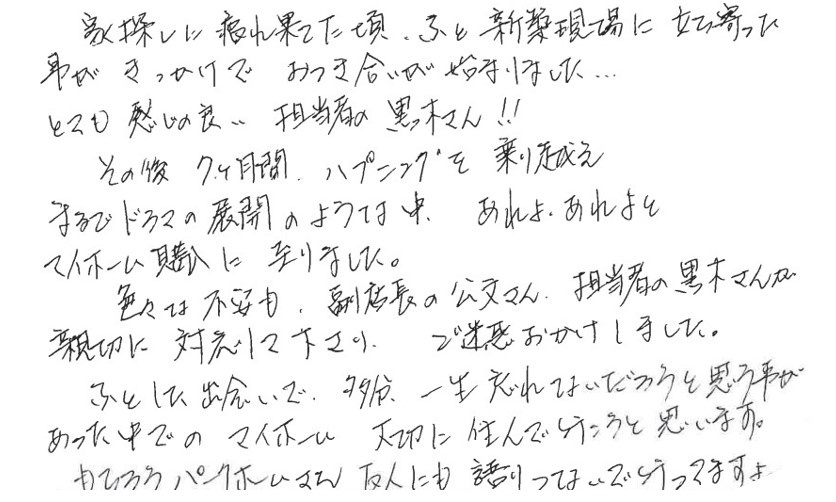 家探しに疲れ果てた頃、ふと新築現場に立ち寄った
事がきっかけでおつき合いが始まりました…
とても感じの良い担当者の黒木さん!!
その後7ヶ月間、ハプニングを乗り越え
まるでドラマの展開のような中、あれよ、あれよと
マイホーム購入に至りました。
色々な不安も、副店長の公文さん、担当者の黒木さんが
親切に対応して下さり、ご迷惑おかけしました。
ふとした出会いで、多分、一生忘れないだろうと思う事が
あった中でのマイホーム大切に住んで行こうと思います。
もちろんパークホームさん友人にも語りつないで行ってますよ